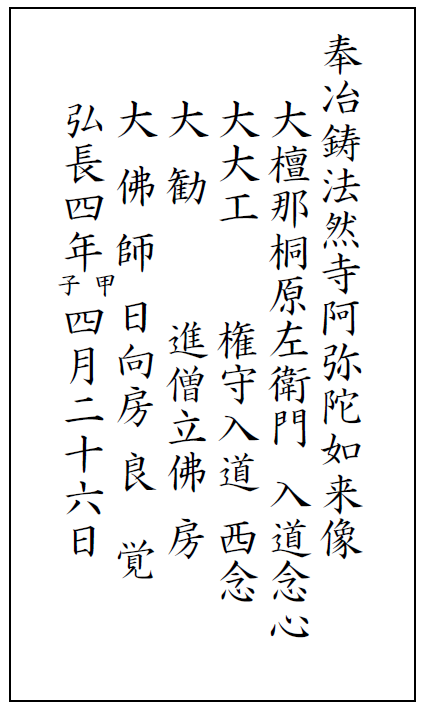 奉冶鋳法然寺阿弥陀如来像
大檀那桐原左衛門　入道念心
大大工　　権守入道　西念
大　勧　　進僧立佛　房
大　佛　師　日向房　良　覚
弘長四年甲子四月二十六日